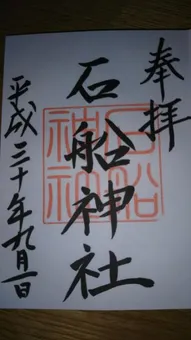 奉拝
石船神社
平成三十年九月一日
石船
神社